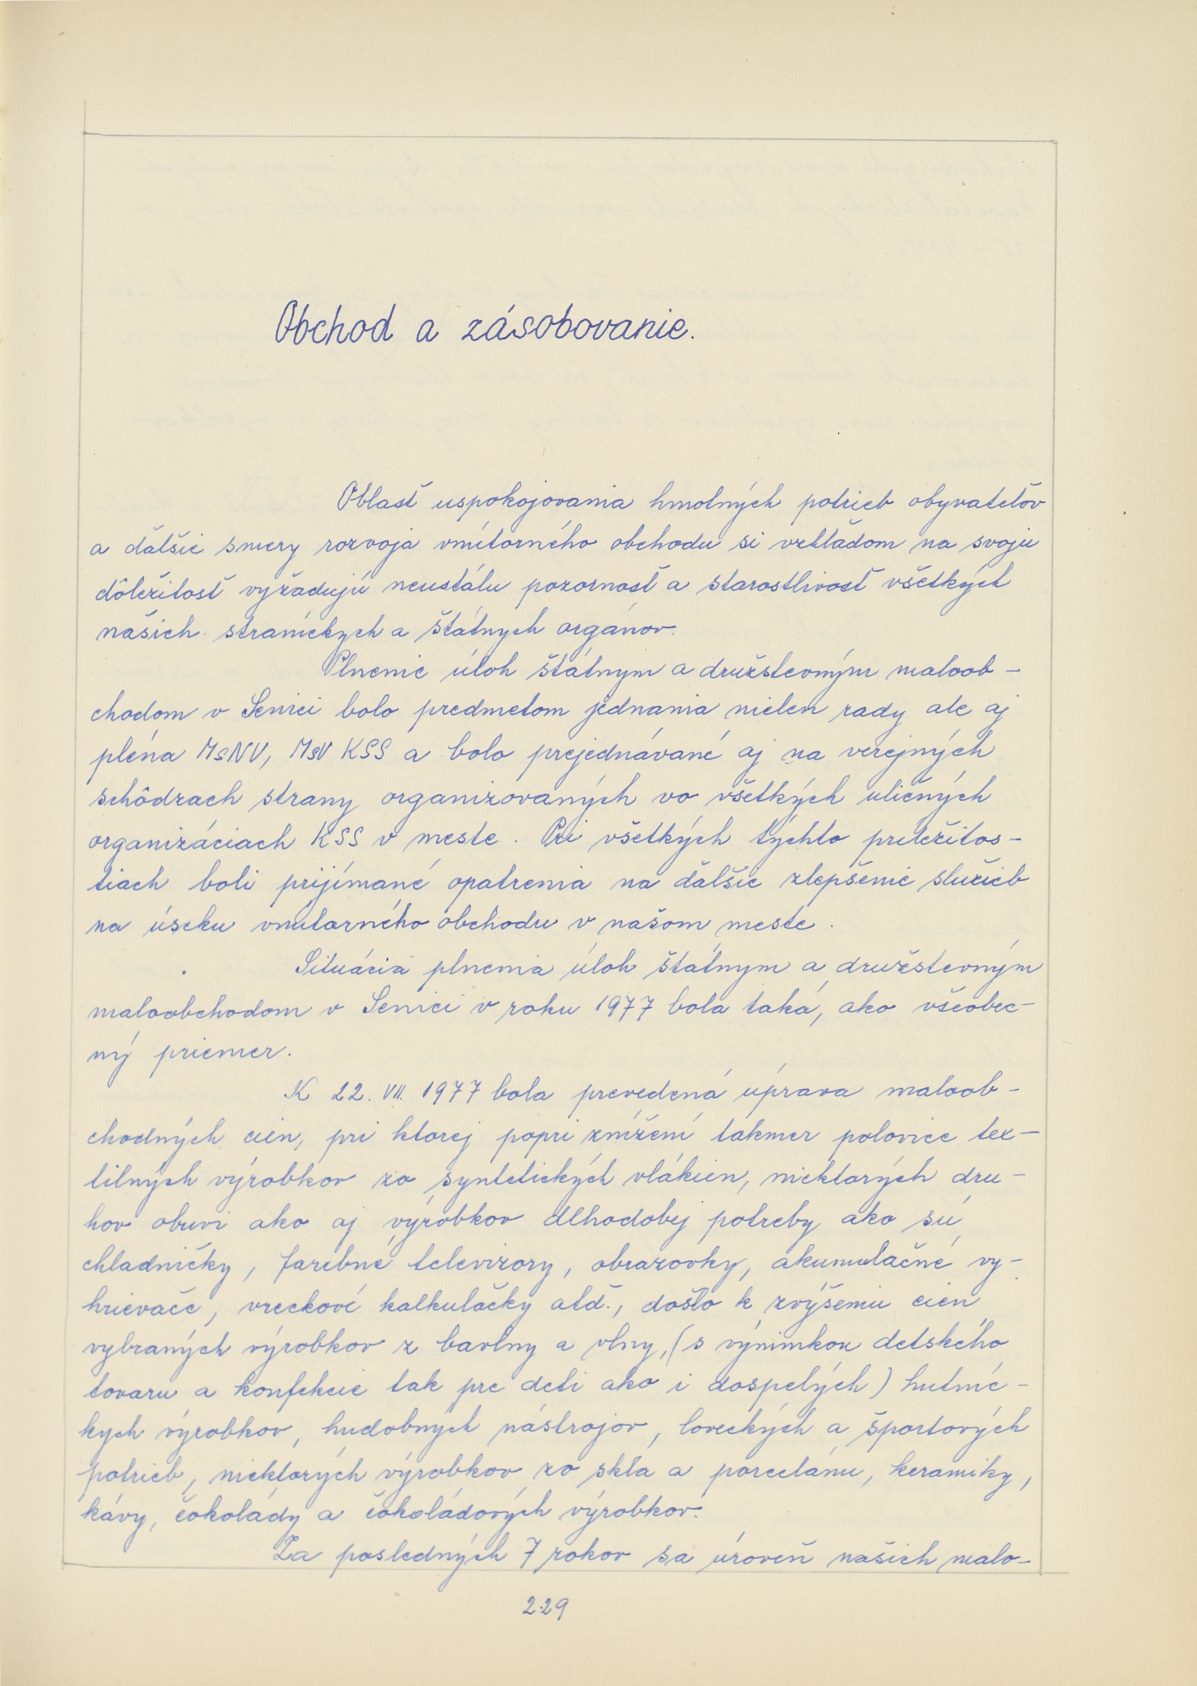 Obchod a zásobovanie.
Oblasť uspokojovania hmotných potrieb obyvateľov
a ďalšie smery rozvoja vnútorného obchodu si vzhľadom na svoju
dôležitosť vyžadujú neustálu pozornosť a starostlivosť všetkých
našich straníckych a štátnych orgánov.
Plnenie úloh štátnym a družstevným maloob-
chodom v Senici bolo predmetom jednania nielen rady ale aj
pléna MsNV, MsV KSS a bolo prejednávané aj na verejných
schôdzach strany organizovaných vo všetkých uličných
organizáciach KSS v meste. Pri všetkých týchto príležitos-
tiach boli prijímané opatrenia na ďalšie zlepšenie služieb
na úseku vnútorného obchodu v našom meste.
Situácia plnenia úloh štátnym a družstevným
maloobchodom v Senici v roku 1977 bola taká, ako všeobec-
ný priemer.
K 22. VII. 1977 bola prevedená úprava maloob-
chodných cien, pri ktorej popri znížení takmer polovice tex-
tilných výrobkov zo syntetických vlákien, niektorých dru-
hov obuvi ako aj výrobkov dlhodobej potreby ako sú
chladničky, farebné televízory, obrazovky, akumulačné vy-
hrievače, vreckové kalkulačky atď., došlo k zvýšeniu cien
vybraných výrobkov z bavlny a vlny, (s výnimkou detského
tovaru a konfekcie tak pre deti ako i dospelých) hutníc-
kych výrobkov, hudobných nástrojov, loveckých a športových
potrieb, niektorých výrobkov zo skla a porcelánu, keramiky,
kávy, čokolády a čokoládových výrobkov.
Za posledných 7 rokov sa úroveň našich malo-
229